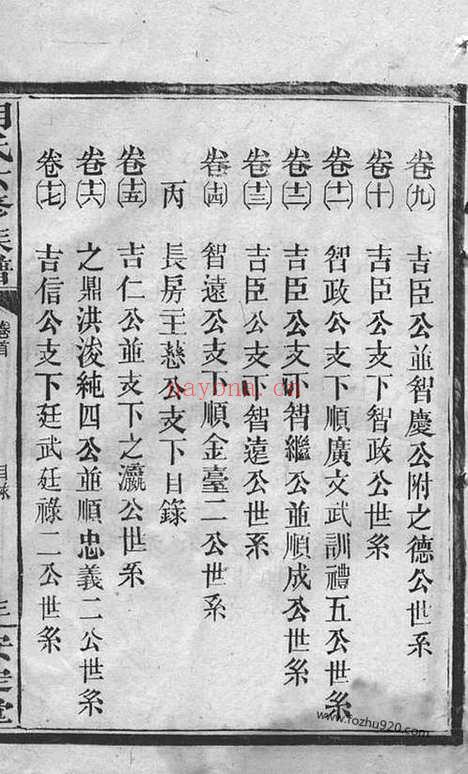 卷九 吉臣公並智慶公附之德公世系
卷十 吉臣公支下智政公世系
卷十一 智政公支下順廣文武訓禮五公世系
卷十二 吉臣公支下智繼公並順成公世系
卷十三 吉臣公支下智遠公世系
卷十四 智遠公支下順金臺二公世系
丙 長房王慈公支下目錄
卷十五 吉仁公並支下之瀛公世系
卷十六 之鼎洪浚純四公並順忠義二公世系
卷十七 吉信公支下廷武廷祿二公世系
氏六修族譜
卷首
目錄
安定堂
nayona.cn
www.rozhu920.com